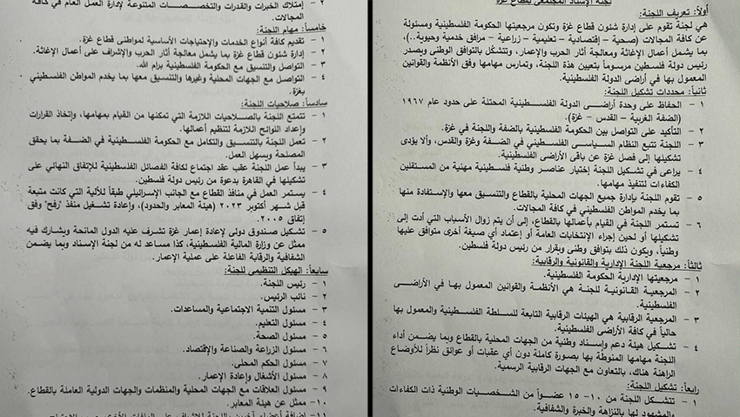 لجنة الإسناد المجتمعي لقطاع غزة
أولاً: تعريف اللجنة:
هي لجنة تقوم على إدارة شئون قطاع غزة وتكون مرجعيتها الحكومة الفلسطينية ومسئولة
عن كافة المجالات (صحية – إقتصادية – تعليمية – زراعية – مرافق خدمية وحيوية..)،
بما يشمل أعمال الإغاثة ومعالجة آثار الحرب والإعمار، وتتشكل بالتوافق الوطني ويصدر
رئيس دولة فلسطين مرسوماً بتعيين هذه اللجنة، وتمارس مهامها وفق الأنظمة والقوانين
المعمول بها في أراضى الدولة الفلسطينية.
ثانياً: محددات تشكيل اللجنة:
١ – الحفاظ على وحدة أراضــى الدولة الفلسـطينية المحتلة على حدود عام ١٩٦٧
(الضفة الغربية – القدس – غزة).
٢ – التأكيد على التواصل بين الحكومة الفلسطينية بالضفة واللجنة في غزة.
٣ – اللجنة تتبع النظام السياسـى الفلسطيني في الضفة وغزة والقدس، وألا يؤدى
تشكيلها إلى فصل غزة عن باقى الأراضى الفلسطينية.
٤ – يراعى في تشكيل اللجنة إختيار عناصر وطنية فلسطينية مهنية من المستقلين
الكفاءات لتنفيذ مهامها.
٥ – تقوم اللجنة بإدارة جميع الجهات المحلية بالقطاع والتنسيق معها والإستفادة منها
بما يخدم المواطن الفلسطيني في كافة المجالات.
٦ – تستمر اللجنة في القيام بأعمالها بالقطاع، إلى أن يتم زوال الأسباب التي أدت إلى
تشكيلها أو لحين إجراء الإنتخابات العامة أو إعتماد أي صيغة أخرى متوافق عليها
وطنياً، ويكون ذلك بتوافق وطنى وبقرار من رئيس دولة فلسطين.
ثالثاً: مرجعية اللجنة الإدارية والقانونية والرقابية:
١ – مرجعيتها الإدارية الحكومة الفلسطينية.
٢ – المرجعية القـانونية للجنة هي الأنظمة والقوانين المعمول بهـا في الأراضـى
الفلسطينية.
٣ – المرجعية الرقابية هي الهيئات الرقابية التابعة للسـلطة الفلسطينية والمعمول بها
حالياً في كافة الأراضى الفلسطينية.
٤ – تشكيل هيئة دعم وإسناد وطنية من الجهات المحلية بالقطاع وبما يضمن أداء
اللجنة مهامها المنوطة بها بصورة كاملة دون أي عقبات أو عوائق نظراً للأوضاع
الراهنة هناك، بالتعاون مع الجهات الرقابية الرسمية.
رابعاً: تشكيل اللجنة:
١ – تتشـكل اللجنة من ١٠- ١٥ عضـواً من الشـخصيات الوطنية ذات الكفاءات
والمشهود لها بالنزاهة والخبرة والشفافية.
٢ – إمتلاك الخبرات والقدرات والتخصصـات المتنوعة لإدارة العمل العام في كافة
المجالات.
خامساً: مهام اللجنة:
١ – تقديم كافة أنواع الخدمات والإحتياجات الأساسية لمواطنى قطاع غزة.
٢ – إدارة شئون قطاع غزة بما يشمل معالجة آثار الحرب والإشراف على أعمال الإغاثة.
٣ – التواصل والتنسيق مع الحكومة الفلسطينية برام الله.
٤ – التواصل مع الجهات المحلية وغيرها والتنسيق معها بما يخدم المواطن الفلسطيني
بغزة.
سادساً: صلاحيات اللجنة:
١ – تتمتع اللجنة بالصلاحيات اللازمة التي تمكنها من القيام بمهامها، وإتخاذ القرارات
وإعداد اللوائح اللازمة لتنظيم أعمالها.
٢ – تعمل اللجنة بالتنسيق والتكامل مع الحكومة الفلسطينية في الضـفة بما يحقق
المصلحة ويسهل العمل.
٣ – يبدأ عمل اللجنة عقب عقد إجتماع لكافة الفصائل الفلسطينية للإتفاق النهائى على
تشكيلها في القاهرة بدعوة من رئيس دولة فلسطين.
٤ – يستمر العمل في منافذ القطاع مع الجانب الإسرائيلي طبقاً للآلية التي كانت متبعة
قبل شهر أكتوبر ٢٠٢٣ (هيئة المعابر والحدود)، وإعادة تشغيل منفذ "رفح" وفق
إتفاق ٢٠٠٥.
٥ – تشكيل صندوق دولى لإعادة إعمار غزة تشرف عليه الدول المانحة ويشارك فيه
ممثل عن وزارة المالية الفلسطينية، كذا مساعد له من لجنة الإسناد وبما يضمن
الشفافية والرقابة الفاعلة على عملية الإعمار.
سابعاً: الهيكل التنظيمى للجنة:
١ – رئيس اللجنة.
٢ – نائب الرئيس.
٣ – مسئول التنمية الإجتماعية والمساعدات.
٤ – مسئول التعليم.
٥ – مسئول الصحة.
٦ – مسئول الزراعة والصناعة والإقتصاد.
٧ – مسئول الحكم المحلى.
٨ – مسئول الأشغال وإعادة الإعمار.
٩ – مسئول العلاقات مع الجهات المحلية والمنظمات والجهات الدولية العاملة بالقطاع.
١٠ – ممثل عن هيئة المعابر.